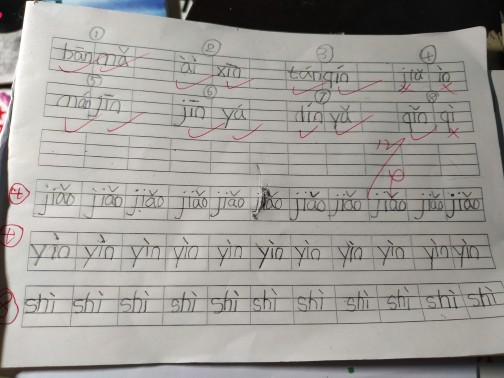 ① ② ③ ④
bān mǎ ài xīn tán qín jiā ìn
⑤ ⑥ ⑦ ⑧
máo jīn jīn yá dín yǎ qǐn qì
④ jiǎo jiǎo jiǎo jiǎo jiǎo jiǎo jiǎo jiǎo jiǎo jiǎo jiǎo
yìn yìn yìn yìn yìn yìn yìn yìn yìn yìn yìn
⑧ shì shì shì shì shì shì shì shì shì shì shì